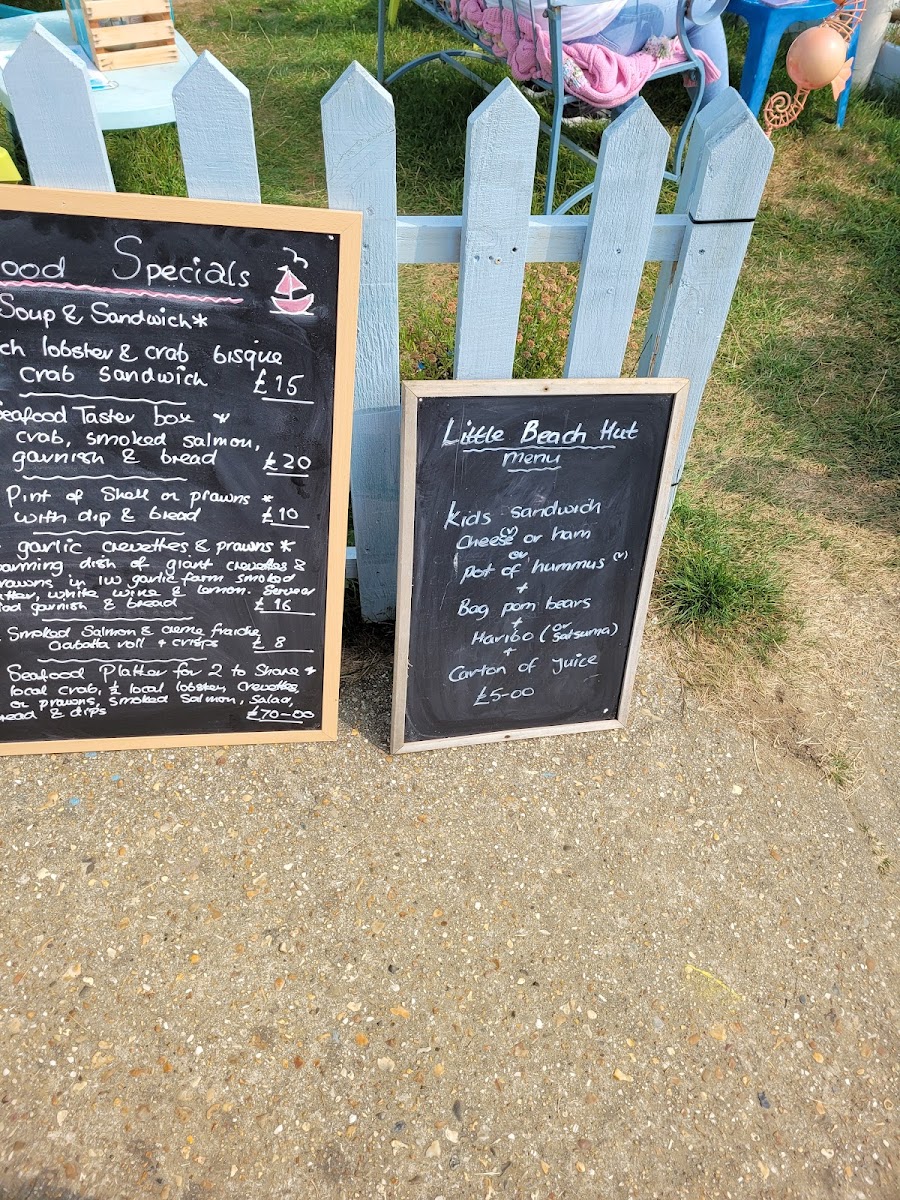 ood Specials
Soup & Sandwich*
ch lobster & crab bisque
crab sandwich £15
eafood Taster box *
crab, smoked salmon,
garnish & bread £20
Pint of Shell on prawns *
with dip & bread £10
garlic crevettes & prawns *
arming dish of giant crevettes &
rawns in IW garlic farm smoked
tter, white wine & lemon. Serve
lad garnish & bread £16
Smoked Salmon & creme fraiche
Ciabatta roll + crisps £8
Seafood Platter for 2 to Share *
local crab, ½ local lobster, Crevettes,
or prawns, Smoked Salmon, Salad,
read & dips £70-00
Little Beach Hut
menu
Kids sandwich
Cheese (v) or ham
or
Pot of hummus (v)
+
Bag pom bears
+
Haribo (or Satsuma)
+
Carton of Juice
£5-00